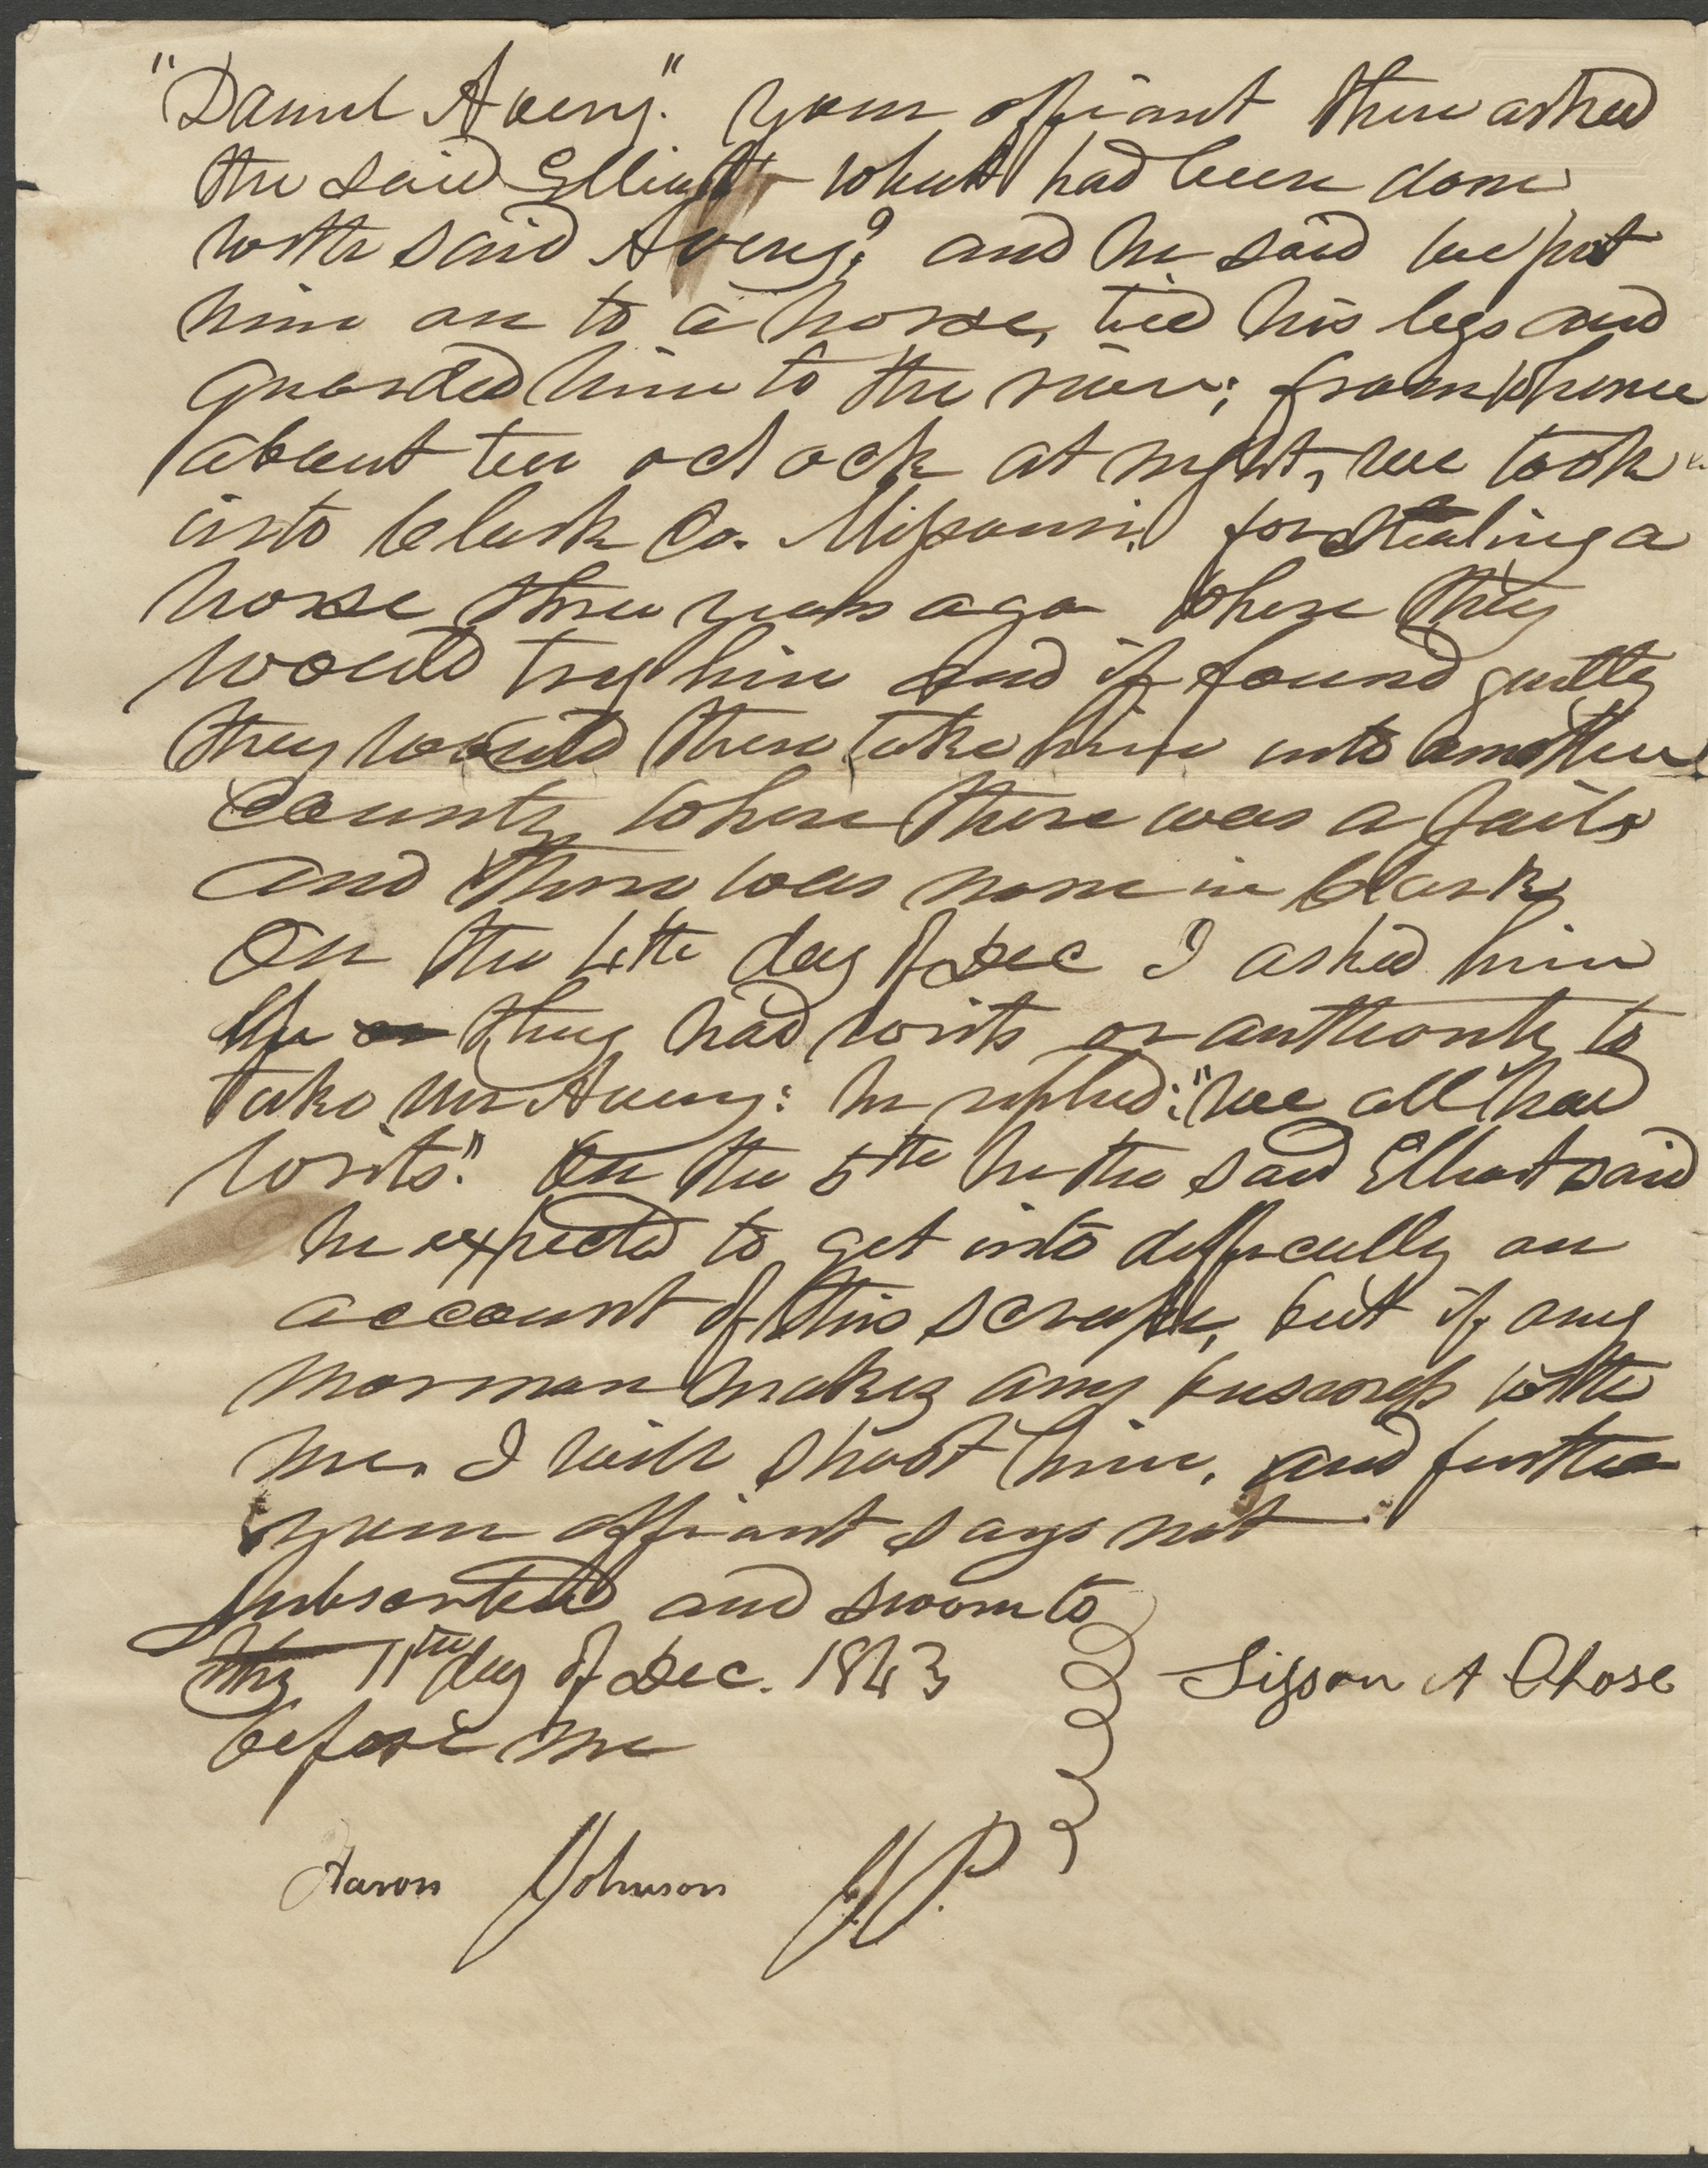 "Daniel Avery." your affiant then asked
the said Elliott what had been done
with said Avery? and he said we put
him on to a horse, tied his legs and
guarded him to the river; from whence
about ten oclock at night, we took
into Clark Co. Missouri, for stealing a
horse three years ago where they
would try him and if found guilty
they would then take him into another
county where there was a jail,
and there was none in Clark,
On the 4th day of Dec I asked him
if they had writs or authority to
take Mr Avery: he replied: "we all had
writs." On the 5th he the said Elliott said
he expected to get into difficulty on
account of this scrape, but if any
mormon makes any business with
me. I will shoot him. and further
your affiant says not
subscribed and sworn to
this 11th day of Dec. 1843
before me
Sisson A Chase
Aaron Johnson J.P.